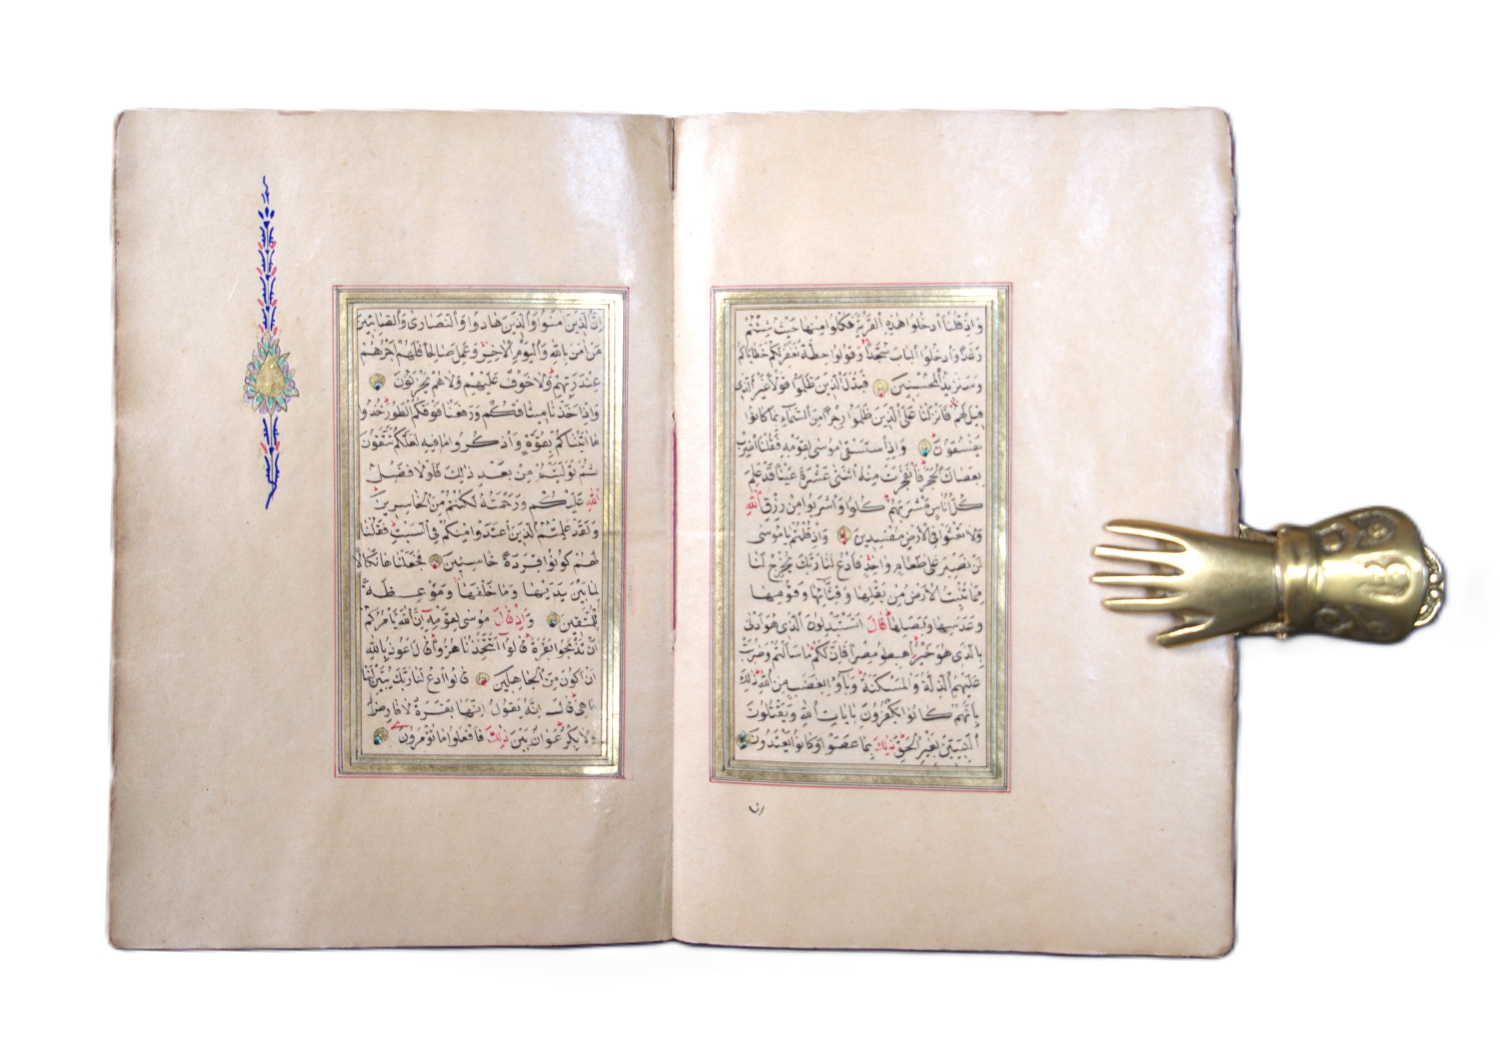 وَاِذْ قُلْنَا ادْخُلُوا هٰذِهِ الْقَرْيَةَ فَكُلُوا مِنْهَا حَيْثُ شِئْتُمْ
رَغَدًا وَادْخُلُوا الْبَابَ سُجَّدًا وَقُولُوا حِطَّةٌ نَغْفِرْ لَكُمْ خَطَايَاكُمْ
وَسَنَزِيدُ الْمُحْسِنِينَ فَبَدَّلَ الَّذِينَ ظَلَمُوا قَوْلًا غَيْرَ الَّذِى
قِيلَ لَهُمْ فَاَنْزَلْنَا عَلَى الَّذِينَ ظَلَمُوا رِجْزًا مِنَ السَّمَاءِ بِمَا كَانُوا
يَفْسُقُونَ وَاِذِ اسْتَسْقٰى مُوسٰى لِقَوْمِهِ فَقُلْنَا اضْرِبْ
بِعَصَاكَ الْحَجَرَ فَانْفَجَرَتْ مِنْهُ اثْنَتَىْ عَشْرَةَ عَيْنًا قَدْ عَلِمَ
كُلُّ اُنَاسٍ مَشْرَبَهُمْ كُلُوا وَاشْرَبُوا مِنْ رِزْقِ اللّٰهِ
وَلَا تَعْثَوْا فِى الْاَرْضِ مُفْسِدِينَ وَاِذْ قُلْتُمْ يَا مُوسٰى
لَنْ نَصْبِرَ عَلٰى طَعَامٍ وَاحِدٍ فَادْعُ لَنَا رَبَّكَ يُخْرِجْ لَنَا
مِمَّا تُنْبِتُ الْاَرْضُ مِنْ بَقْلِهَا وَقِثَّائِهَا وَفُومِهَا
وَعَدَسِهَا وَبَصَلِهَا قَالَ اَتَسْتَبْدِلُونَ الَّذِى هُوَ اَدْنٰى
بِالَّذِى هُوَ خَيْرٌ اِهْبِطُوا مِصْرًا فَاِنَّ لَكُمْ مَا سَاَلْتُمْ وَضُرِبَتْ
عَلَيْهِمُ الذِّلَّةُ وَالْمَسْكَنَةُ وَبَاؤُ بِغَضَبٍ مِنَ اللّٰهِ ذٰلِكَ
بِاَنَّهُمْ كَانُوا يَكْفُرُونَ بِاٰيَاتِ اللّٰهِ وَيَقْتُلُونَ
النَّبِيِّينَ بِغَيْرِ الْحَقِّ ذٰلِكَ بِمَا عَصَوْا وَكَانُوا يَعْتَدُونَ
اِنَّ
اِنَّ الَّذِينَ اٰمَنُوا وَالَّذِينَ هَادُوا وَالنَّصَارٰى وَالصَّابِئِينَ
مَنْ اٰمَنَ بِاللّٰهِ وَالْيَوْمِ الْاٰخِرِ وَعَمِلَ صَالِحًا فَلَهُمْ اَجْرُهُمْ
عِنْدَ رَبِّهِمْ وَلَا خَوْفٌ عَلَيْهِمْ وَلَا هُمْ يَحْزَنُونَ
وَاِذْ اَخَذْنَا مِيثَاقَكُمْ وَرَفَعْنَا فَوْقَكُمُ الطُّورَ خُذُوا
مَا اٰتَيْنَاكُمْ بِقُوَّةٍ وَاذْكُرُوا مَا فِيهِ لَعَلَّكُمْ تَتَّقُونَ
ثُمَّ تَوَلَّيْتُمْ مِنْ بَعْدِ ذٰلِكَ فَلَوْلَا فَضْلُ
اللّٰهِ عَلَيْكُمْ وَرَحْمَتُهُ لَكُنْتُمْ مِنَ الْخَاسِرِينَ
وَلَقَدْ عَلِمْتُمُ الَّذِينَ اعْتَدَوْا مِنْكُمْ فِى السَّبْتِ فَقُلْنَا
لَهُمْ كُونُوا قِرَدَةً خَاسِئِينَ فَجَعَلْنَاهَا نَكَالًا
لِمَا بَيْنَ يَدَيْهَا وَمَا خَلْفَهَا وَمَوْعِظَةً
لِلْمُتَّقِينَ وَاِذْ قَالَ مُوسٰى لِقَوْمِهِ اِنَّ اللّٰهَ يَاْمُرُكُمْ
اَنْ تَذْبَحُوا بَقَرَةً قَالُوا اَتَتَّخِذُنَا هُزُوًا قَالَ اَعُوذُ بِاللّٰهِ
اَنْ اَكُونَ مِنَ الْجَاهِلِينَ قَالُوا ادْعُ لَنَا رَبَّكَ يُبَيِّنْ لَنَا
مَا هِىَ قَالَ اِنَّهُ يَقُولُ اِنَّهَا بَقَرَةٌ لَا فَارِضٌ
وَلَا بِكْرٌ عَوَانٌ بَيْنَ ذٰلِكَ فَافْعَلُوا مَا تُؤْمَرُونَ